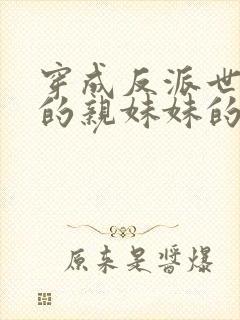 穿成反派世
的親妹妹的
原來是醬爆